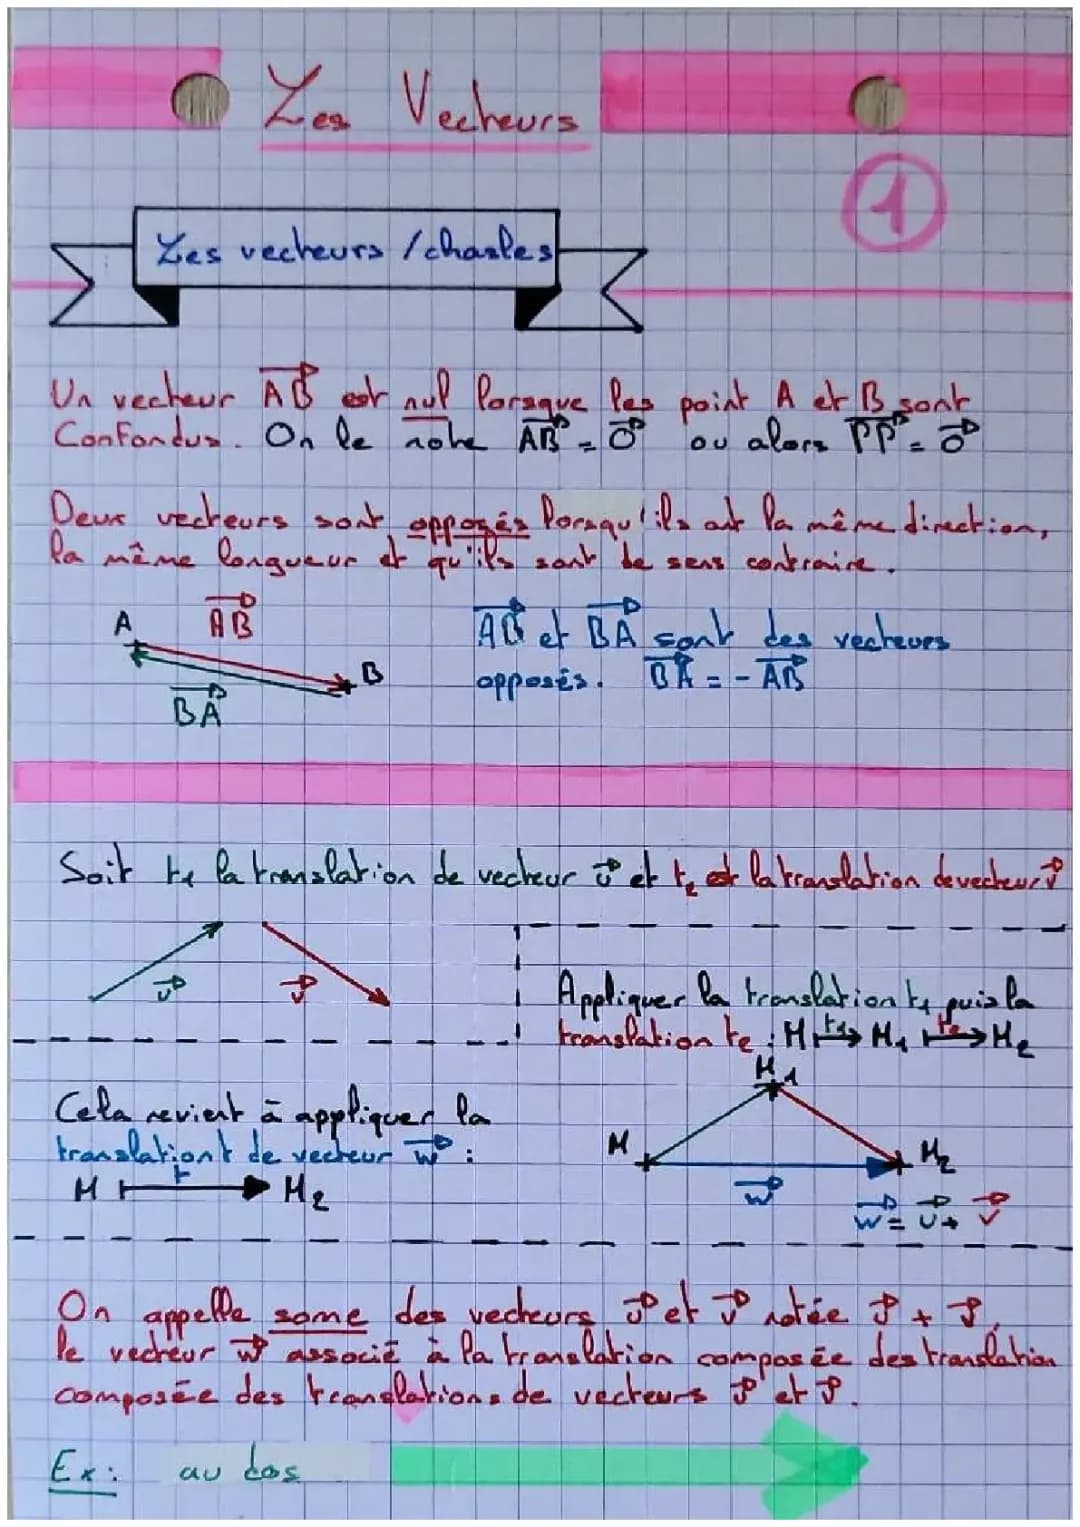 Les Vecteurs
1
Les vecteurs / chasles
Un vecteur AB est nul lorsque les point A et B sont
Confondus. On le note AB = 0 ou alors PP = 0
Deux vecteurs sont opposés lorsqu'ils ont la même direction,
la même longueur et qu'ils sont de sens contraire.
A AB
B
BA
AB et BA sont des vecteurs
opposés. BA = - AB
Soit t1 la translation de vecteur u et t2 est la translation de vecteur v
u v
Appliquer la translation t1 puis la
translation t2 : M t1 M1 t2 M2
Cela revient à appliquer la
translation t de vecteur w :
M t M2
M1
M M2
w
w = u + v
On appelle some des vecteurs u et v notée u + v,
le vecteur w associé à la translation composée des translation
composée des translations de vecteurs u et v.
Ex: au dos